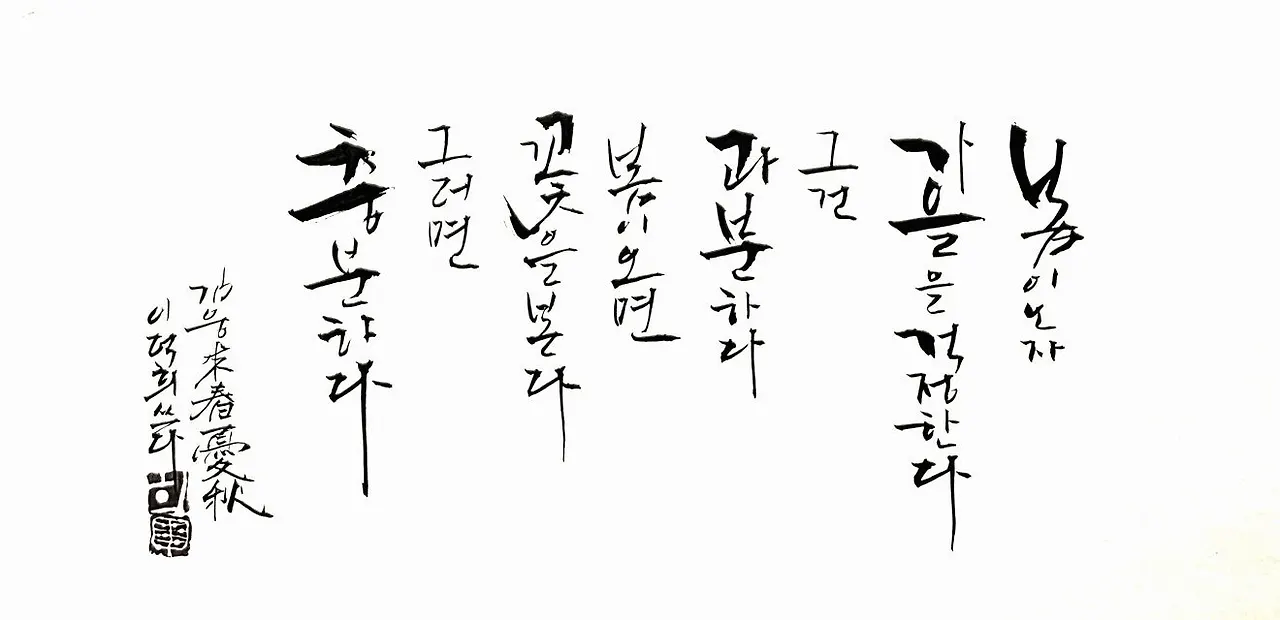 봄이 오자
가을을 걱정한다
그건
과분하다
봄이 오면
꽃을 본다
그러면
충분하다
來春憂秋
이덕희 쓰다